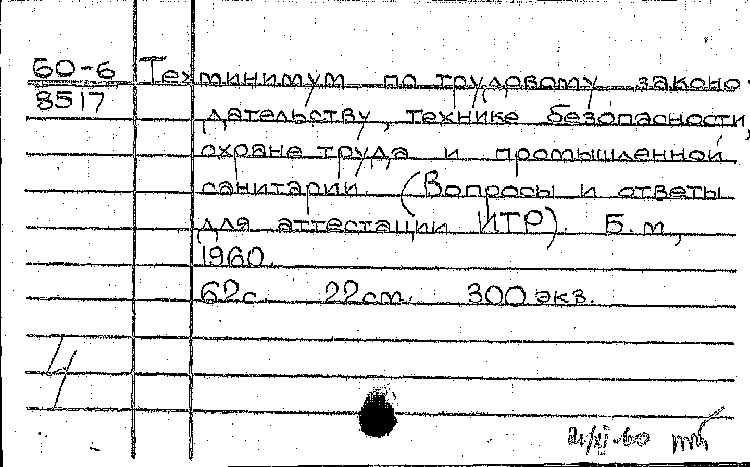 60-6 Техминимум по трудовому законо-
8517 дательству, технике безопасности,
охране труда и промышленной
санитарии. (Вопросы и ответы
для аттестации ИТР). Б.м.,
1960.
62с. 22см. 300 экз.